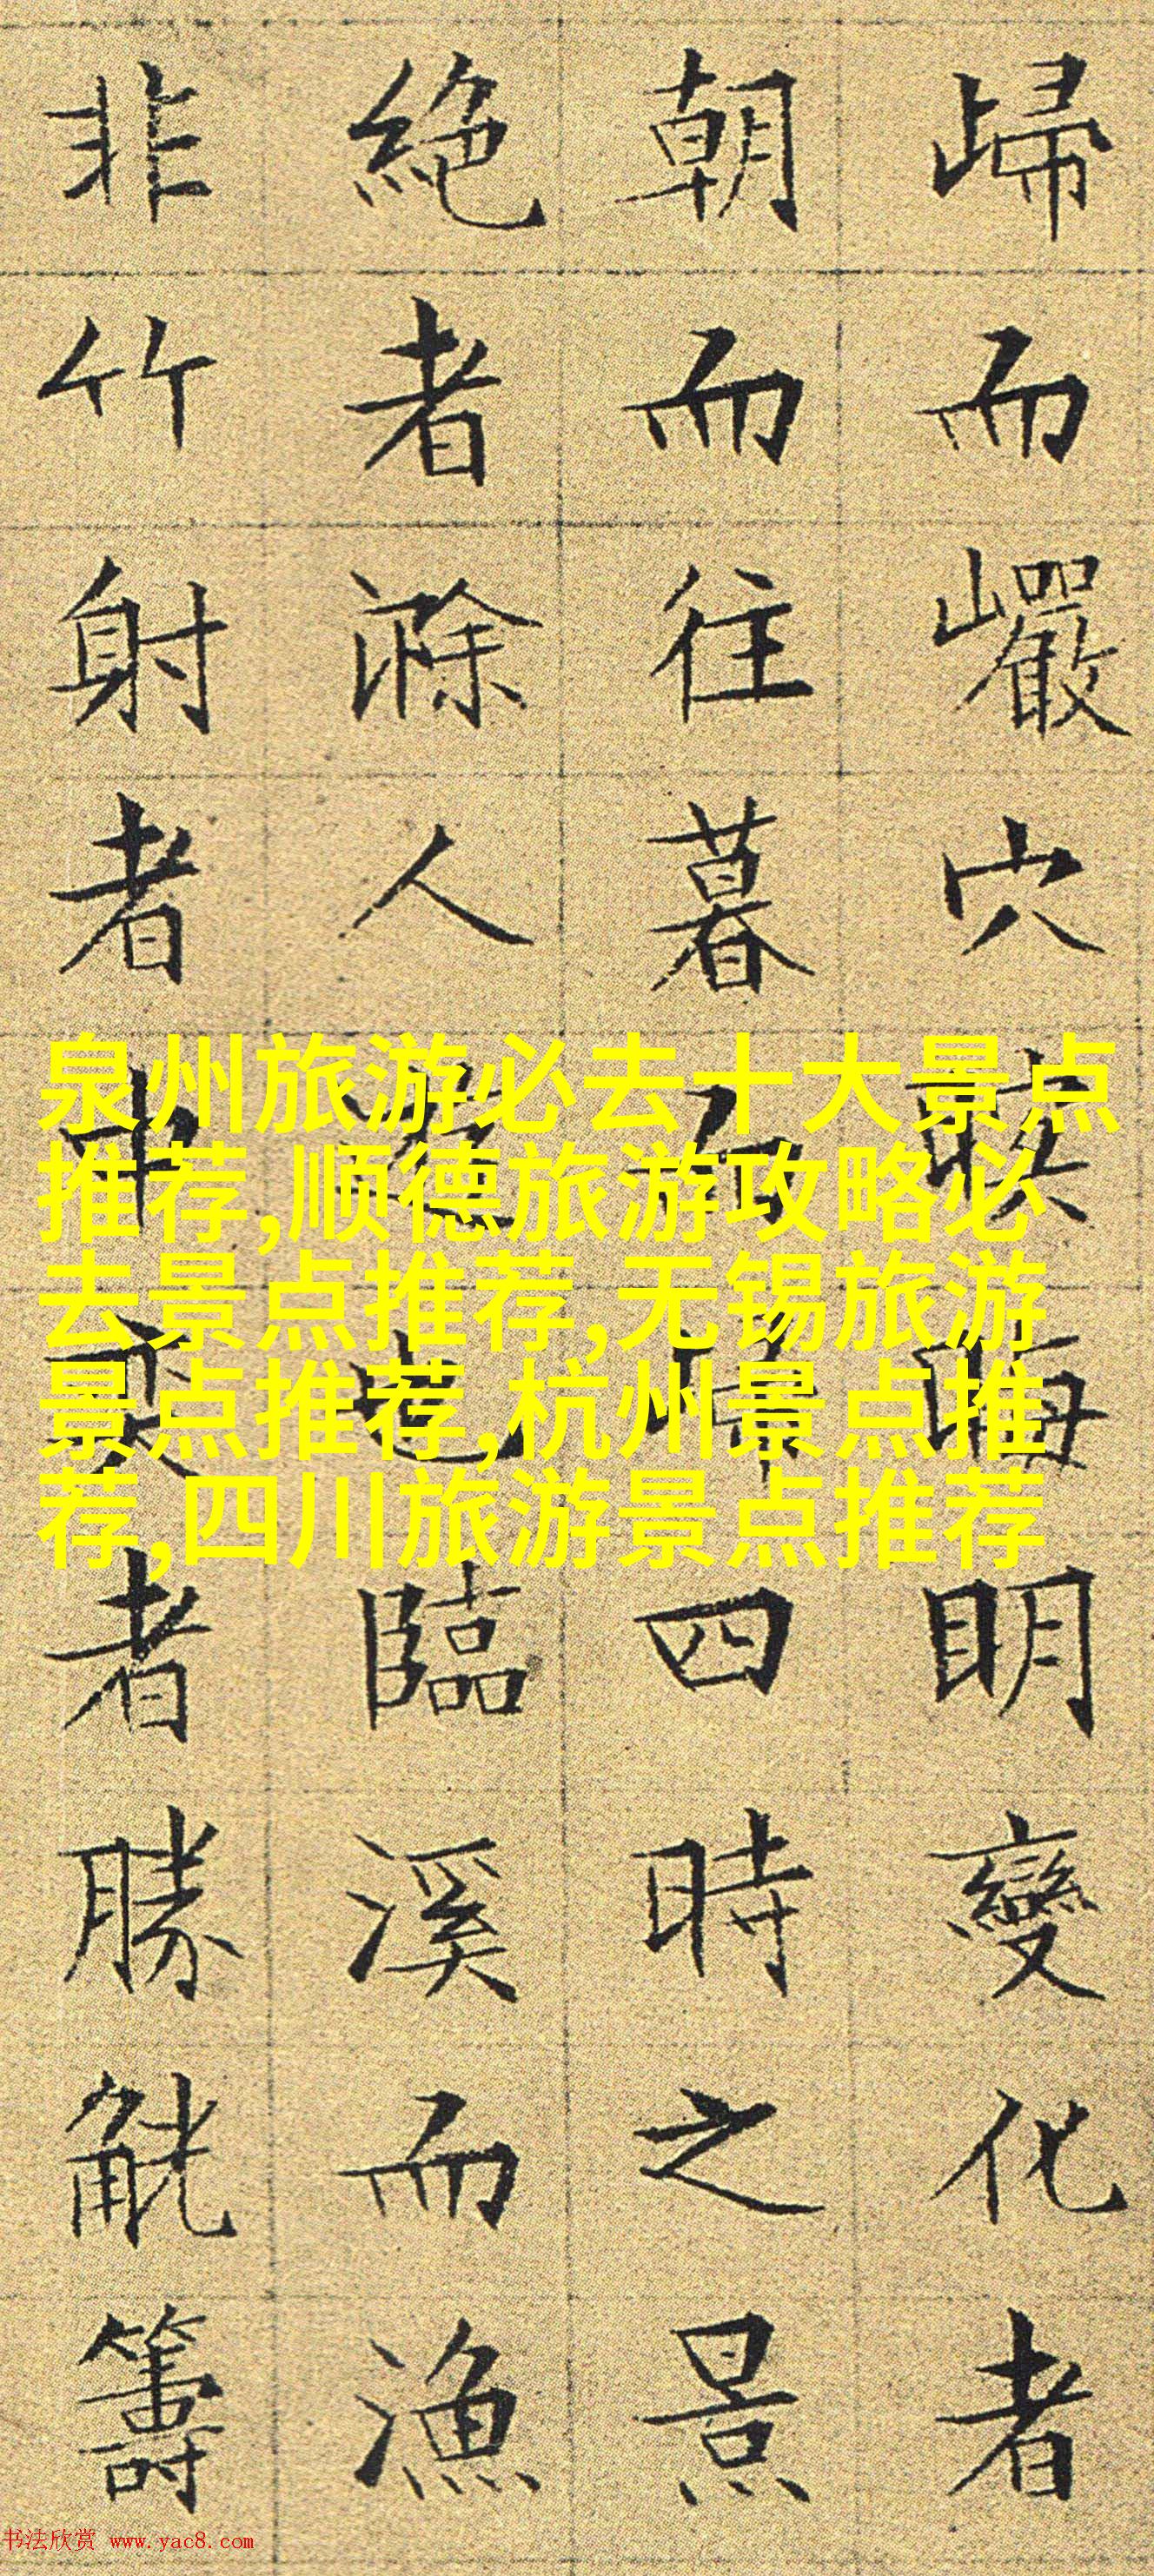 㱕而巗穴暝晦明變化者
朝而往暮而四時之景
絶者滁人也臨溪而漁
非竹射者中奕者勝觥籌
泉州旅游必去十大景点
推荐,顺德旅游攻略必
去景点推荐,无锡旅游
景点推荐,杭州景点推
荐,四川旅游景点推荐
书法欣赏 www.yac8.com